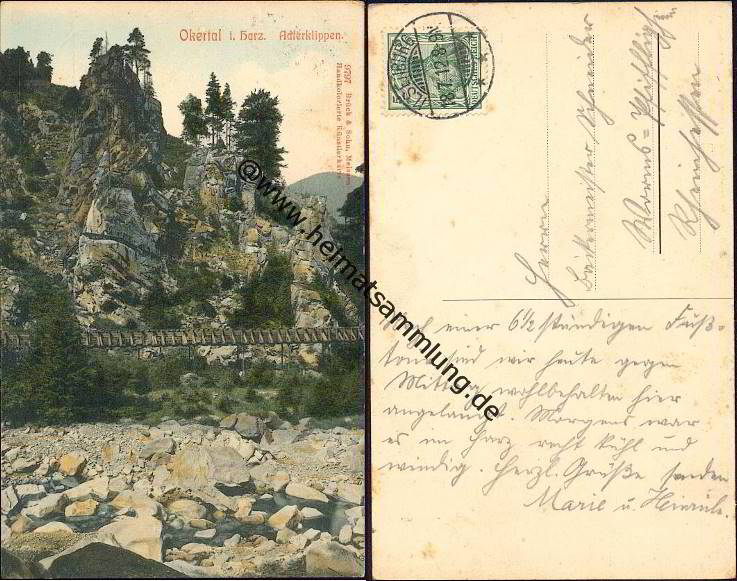 Okertal i. Harz. Adlerklippen.
9797 Brück & Sohn, Meissen
Handkolorierte Künstlerkarte
@www.heimatsammlung.de
5
12 8-9N
Herrn
Bäckermeister Schneider
Worms-Pfiffligheim
Rheinhessen
Nach einer 6 1/2 stündigen Fuß-
tour sind wir heute gegen
Mittag wohlbehalten hier
angelangt. Morgens war
es im Harz recht kühl und
windig. Herzl. Grüße senden
Marie u. Heinrich.